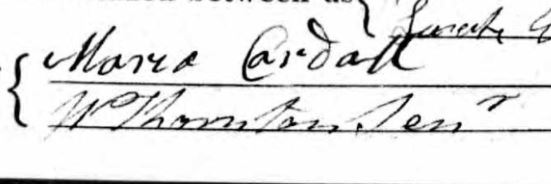 between us
Sarah
Maria Cardall
W Thornton Senr